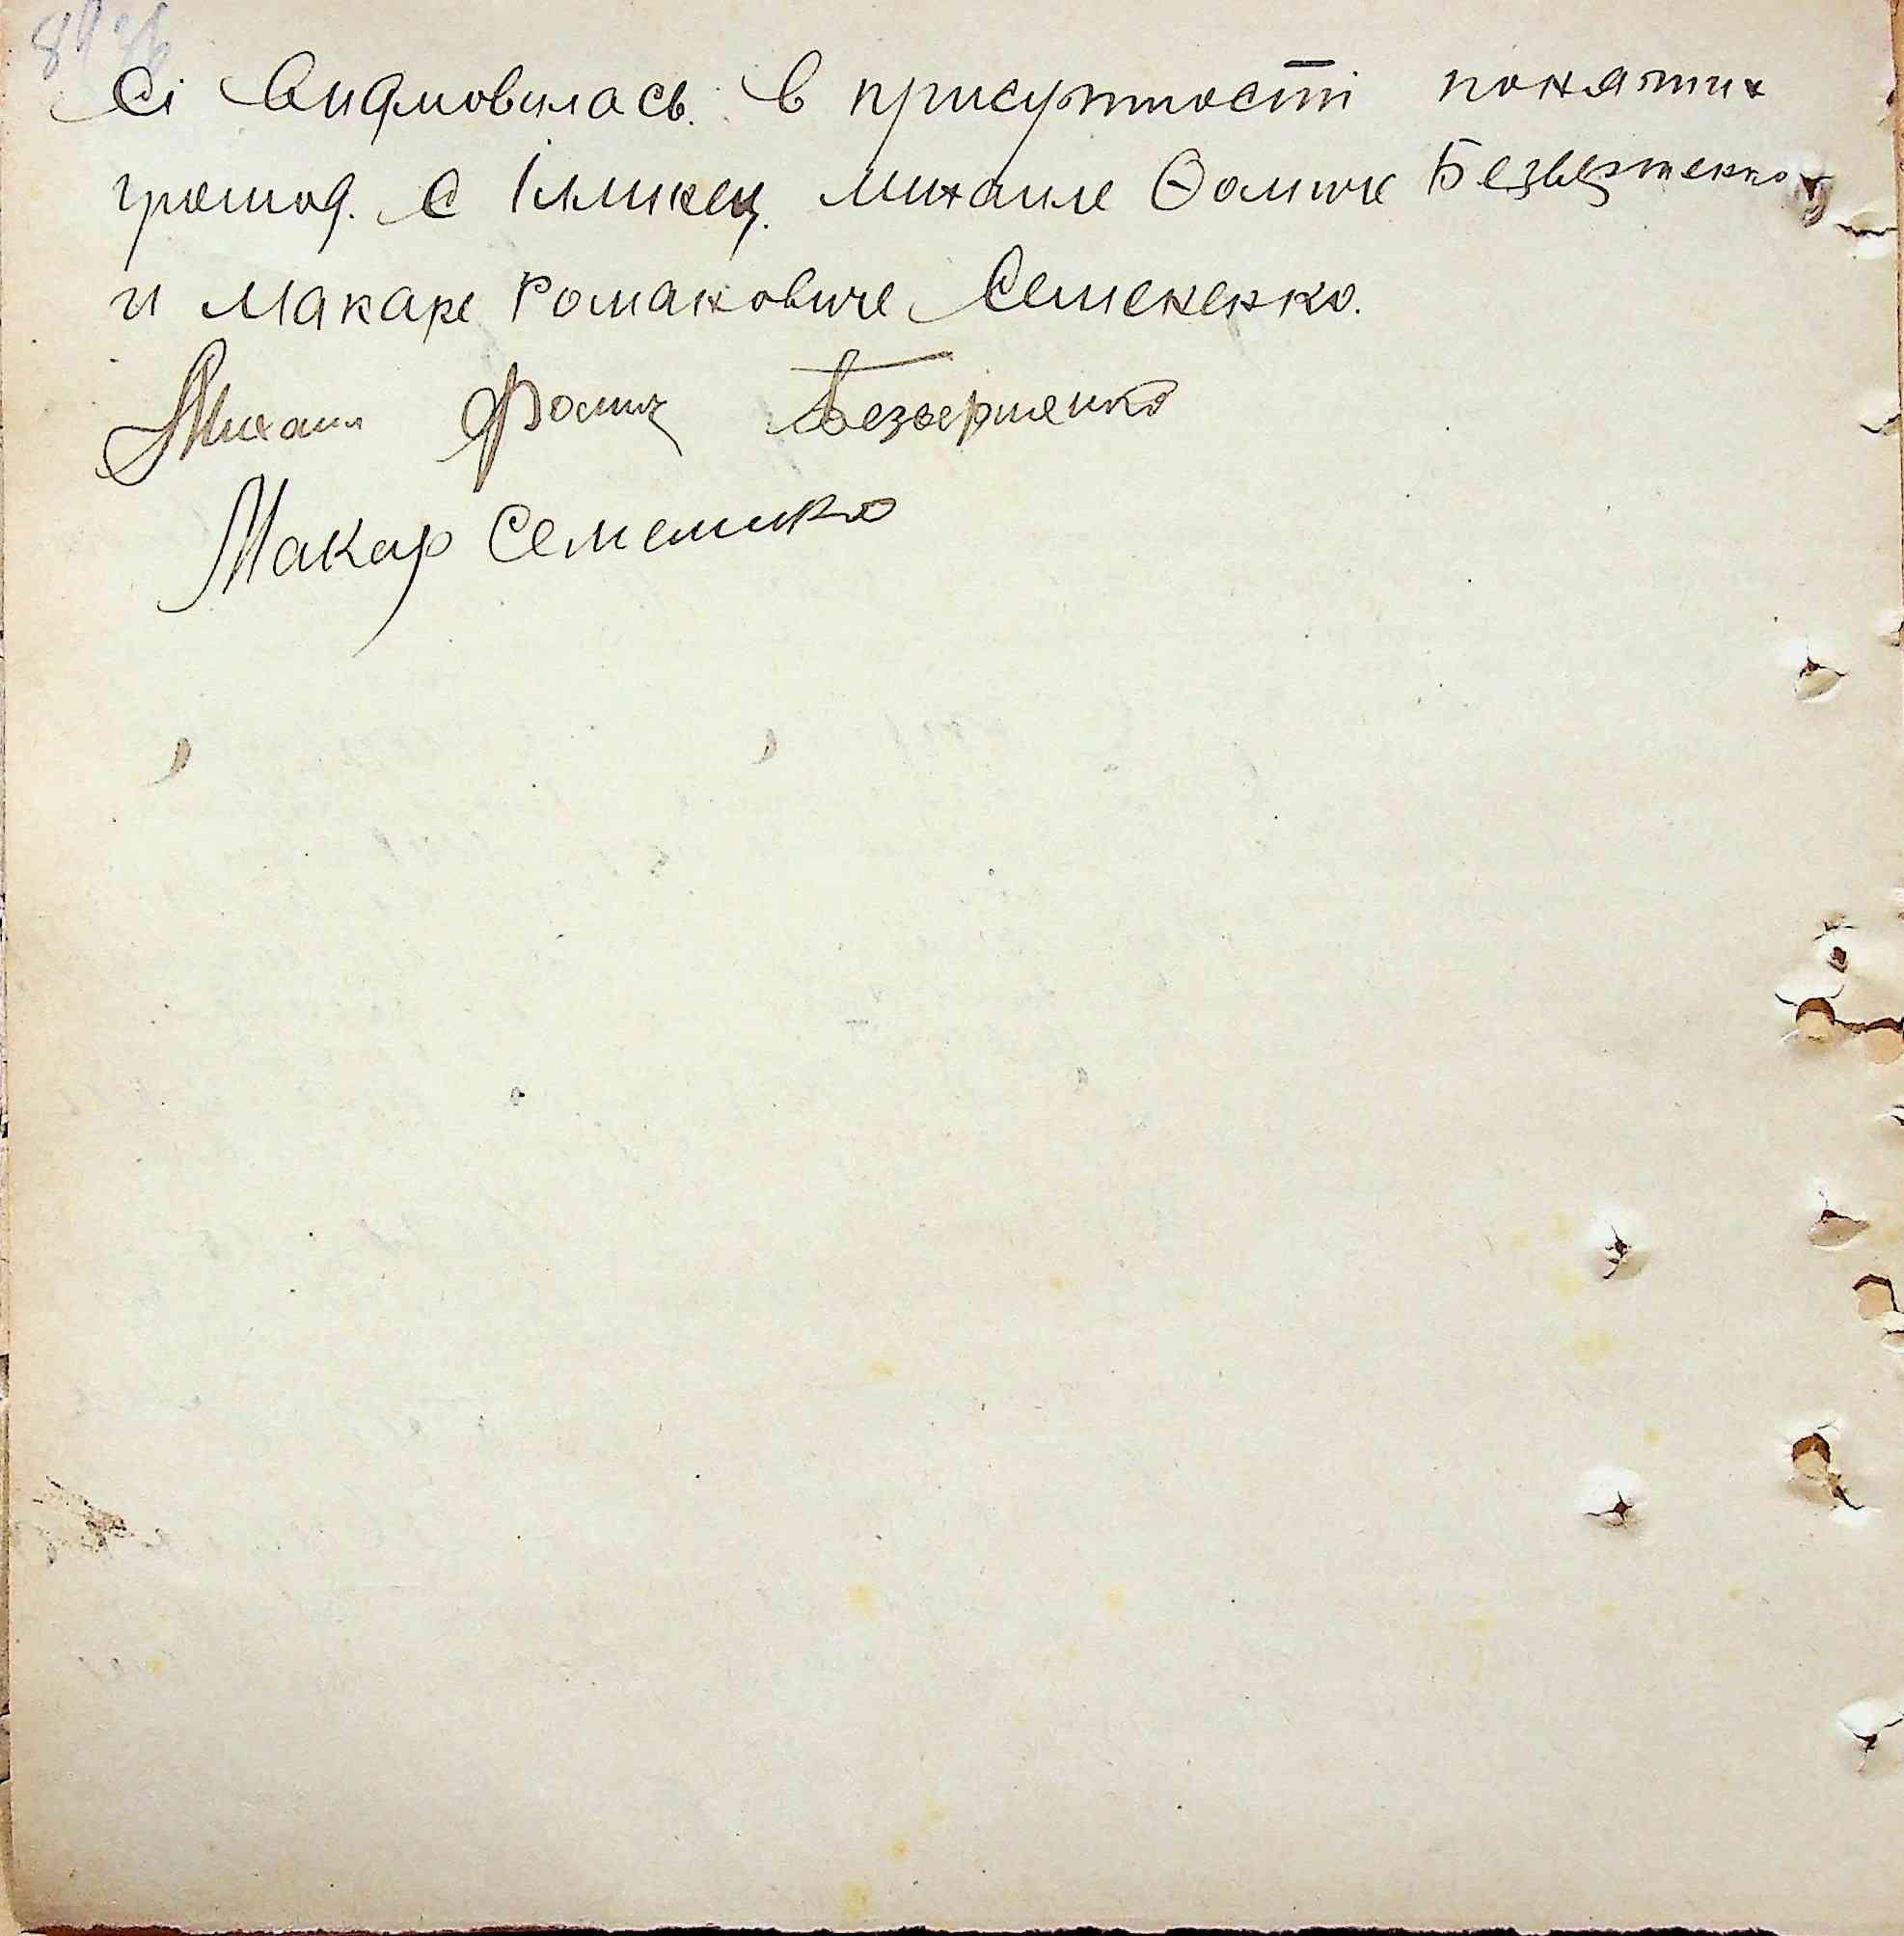 сі видмовилась. в присутности понятих
громад. с Іллинец. Михаиле Ѳомиче Безвертенко
и Макаре Романовиче Семененко.
Михаил Фомич Безвертенко
Макар Семененко